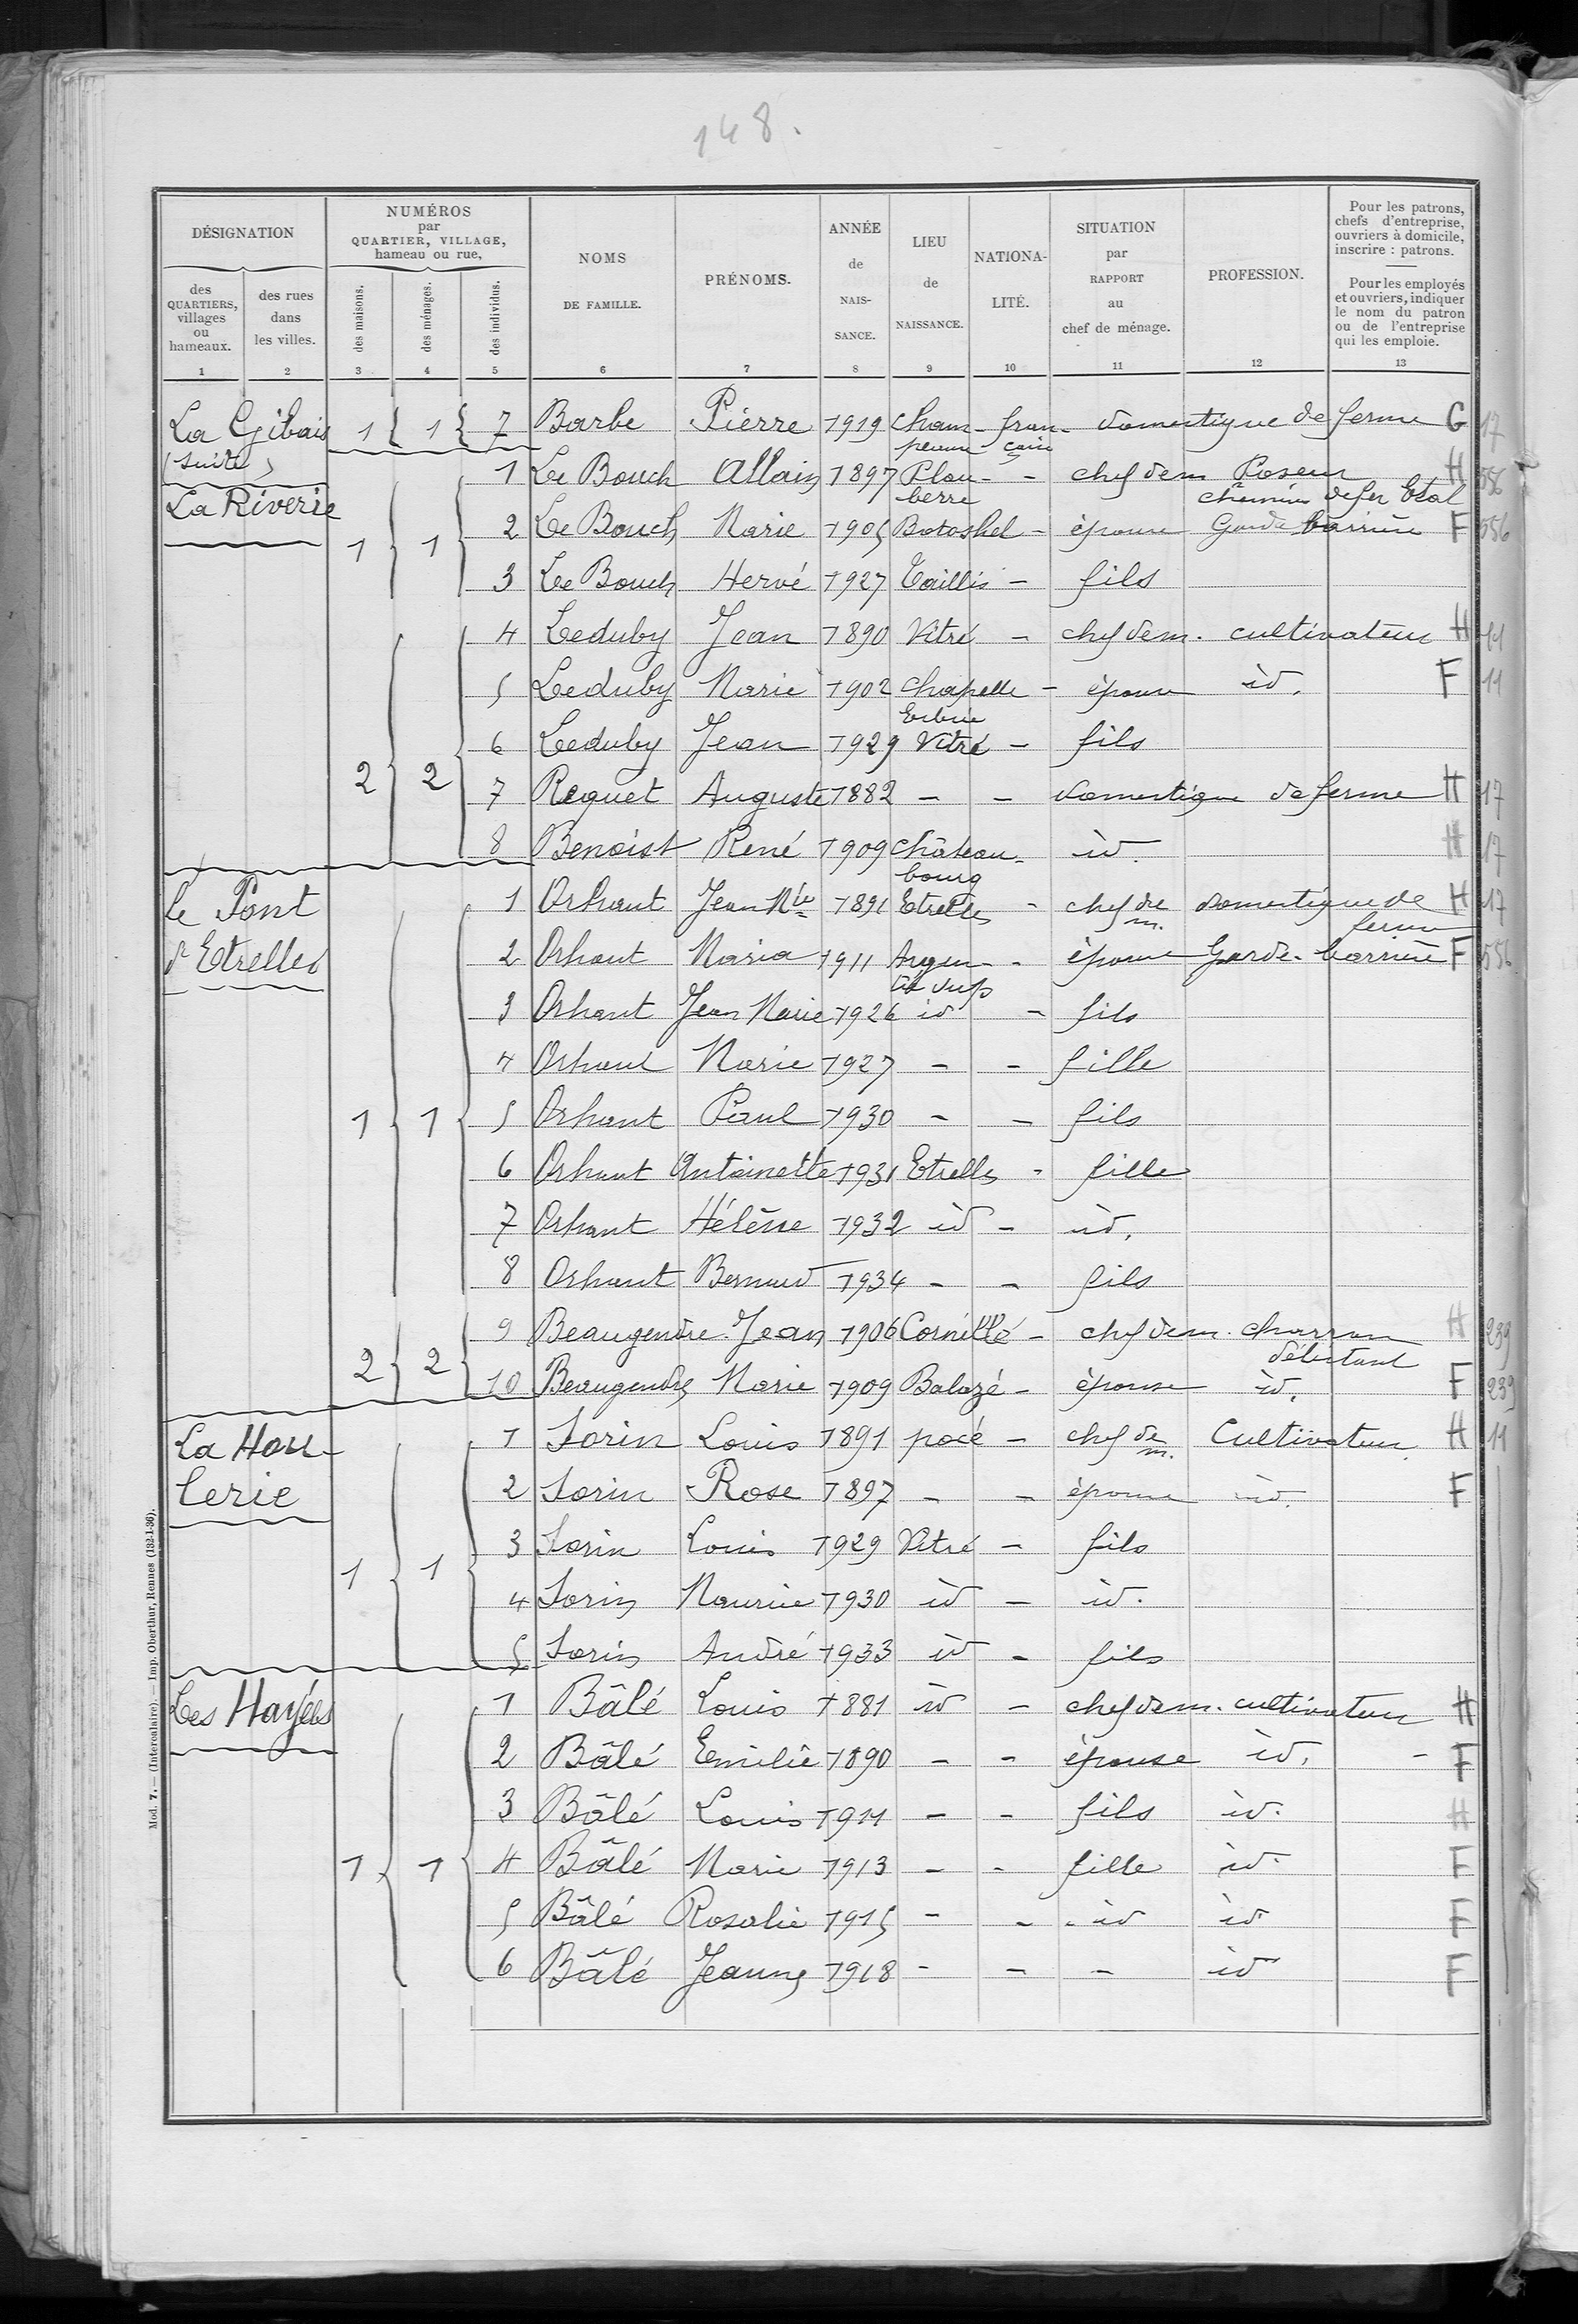 148.
DÉSIGNATION
des QUARTIERS, villages ou hameaux.
des rues dans les villes.
NUMÉROS par QUARTIER, VILLAGE, hameau ou rue,
des maisons.
des ménages.
des individus.
NOMS DE FAMILLE.
PRÉNOMS.
ANNÉE de NAIS- SANCE.
LIEU de NAISSANCE.
NATIONA- LITÉ.
SITUATION par RAPPORT au chef de ménage.
PROFESSION.
Pour les patrons, chefs d'entreprise, ouvriers à domicile, inscrire : patrons.
Pour les employés et ouvriers, indiquer le nom du patron ou de l'entreprise qui les emploie.
1 2 3 4 5 6 7 8 9 10 11 12 13
La Gibais 1 1 7 Barbe Pierre 1919 Cham- fran- domestique de ferme G 17
(suite) peaux çaise
1 Le Bouch Allain 1897 Plou- - chef de m Poseur H 556
La Riverie berre chemins de fer Etat
1 1 2 Le Bouch Marie 1905 Botoshel - épouse Garde barrière F 556
3 Le Bouch Hervé 1927 Taillis - fils
4 Leduby Jean 1890 Vitré - chef de m. cultivateur H 11
5 Leduby Marie 1902 Chapelle - épouse id. F 11
Erbrée
6 Leduby Jean 1929 Vitré - fils
2 2 7 Requet Auguste 1882 - - domestique de ferme H 17
8 Benoist René 1909 Château- id. H 17
bourg
le Pont 1 Orhant Jean Mie 1891 Etrelles - chef de m. domestique de ferme H 17
d'Etrelles 2 Orhant Maria 1911 Argen- - épouse Garde-barrière F 556
3 Orhant Jean Marie 1926 id - fils
4 Orhant Marie 1927 - - fille
1 1 5 Orhant Paul 1930 - - fils
6 Orhant Antoinette 1931 Etrelles - fille
7 Orhant Hélène 1932 id - id.
8 Orhant Bernard 1934 - - fils
9 Beaugendre Jean 1906 Cornillé - chef de m. charron H 239
débutant
2 2 10 Beaugendre Marie 1909 Balazé - épouse id. F 239
La Hou- 1 Sorin Louis 1891 pocé - chef de m. Cultivateur H 11
lerie 2 Sorin Rose 1897 - - épouse id. F
3 Sorin Louis 1929 Vitré - fils
1 1 4 Sorin Maurice 1930 id - id.
5 Sorin André 1933 id - fils
Les Hayées 1 Bâlé Louis 1881 id - chef de m. cultivateur H
2 Bâlé Emilie 1890 - - épouse id. - F
3 Bâlé Louis 1911 - - fils id. H
1 1 4 Bâlé Marie 1913 - - fille id. F
5 Bâlé Rosalie 1915 - - - id id F
6 Bâlé Jeanne 1918 - - - id F
Mod. 7. — (Intercalaire). — Imp. Oberthur, Rennes (132-1-36).